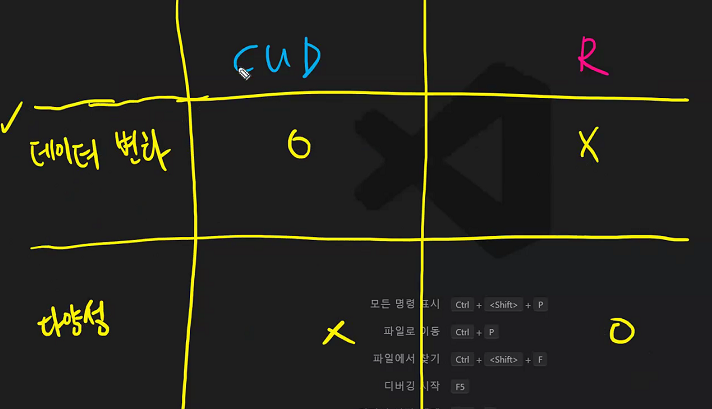 CUD R
✓ 데이터 변화 O X
다양성 X O
모든 명령 표시 Ctrl + <Shift> + P
파일로 이동 Ctrl + P
파일에서 찾기 Ctrl + <Shift> + F
디버깅 시작 F5